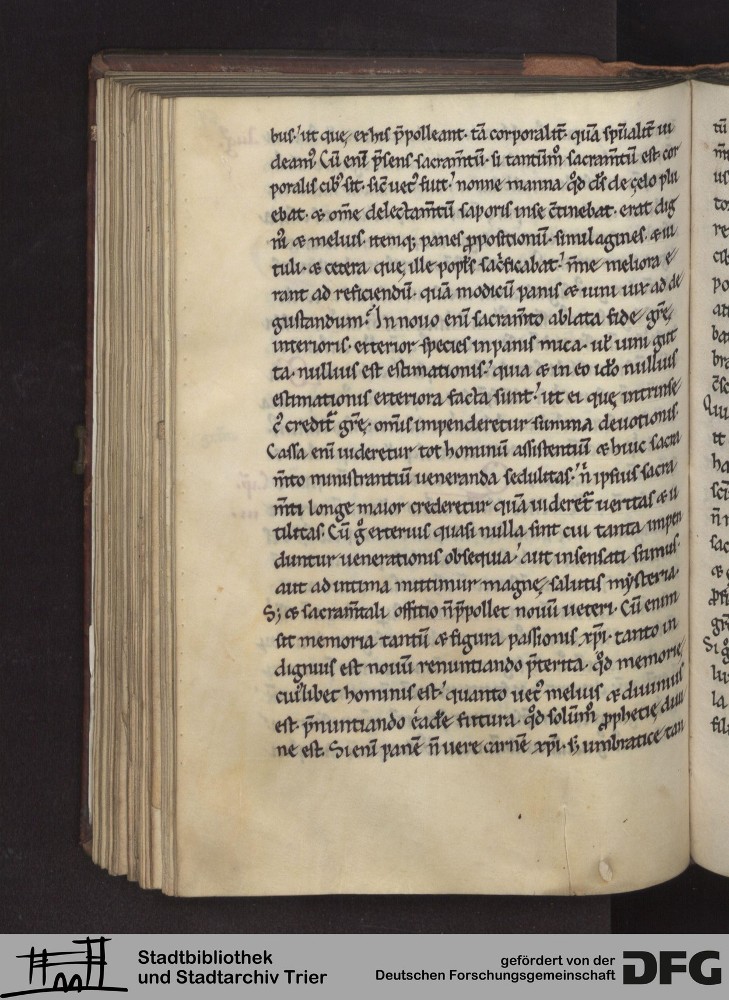 bus. ut que, et his p̄polleant. tā corporalit̄. quā sp̄ualit̄ ui
deamꝰ. Cū eni p̄sens sacram̄tū. si tantūm sacram̄tū est. cor
poralis cibꝰ sit. sic̄ uetꝰ fuit. nonne manna qd̄ ds̄ de celo plu
ebat. & om̄e delectam̄tū saporis in se c̄tinebat. erat dig
niꝰ & melius. itemq; panes ꝓpositionū. similagines. & ui
tuli. & cetera que ille popl̄s sac̄ficabat. n̄ne meliora e
rant ad reficiendū. quā modicū panis & uini uix ad de
gustandum? In nouo eni sacram̄to ablata fide gr̄e,
interioris. exterior species in panis mica. ul̄ uini gut
ta. nullius est estimationis. quia & in eo ido nullius
estimationis exteriora facta sunt. ut ei que intrinse
c̄ credit̄ gr̄e. om̄is impenderetur summa deuotionis.
Cassa eni uideretur tot hominū assistentiū & huic sacra
m̄to ministrantiū ueneranda sedulitas. n̄ ipsius sacra
m̄ti longe maior crederetur quā uideret̄ ueritas & u
tilitas. Cū g̊ exterius quasi nulla sint cui tanta impen
duntur uenerationis obsequia. aut insensati sumus.
aut ad intima mittimur magne, salutis mysteria.
S; & sacram̄tali offitio n̄ p̄pollet nouū ueteri. Cū enim
sit memoria tantū & figura passionis xp̄i. tanto in
dignius est nouū renuntiando p̄terita. qd̄ memorie,
cuiꝰlibet hominis est. quanto uetꝰ melius & diuinius
est. p̄nuntiando eade futura. qd̄ solūm ꝓphetie diui
ne est. Si eni panē n̄ uere carnē xp̄i. s; umbratice tan
Stadtbibliothek
und Stadtarchiv Trier
gefördert von der
Deutschen Forschungsgemeinschaft
DFG